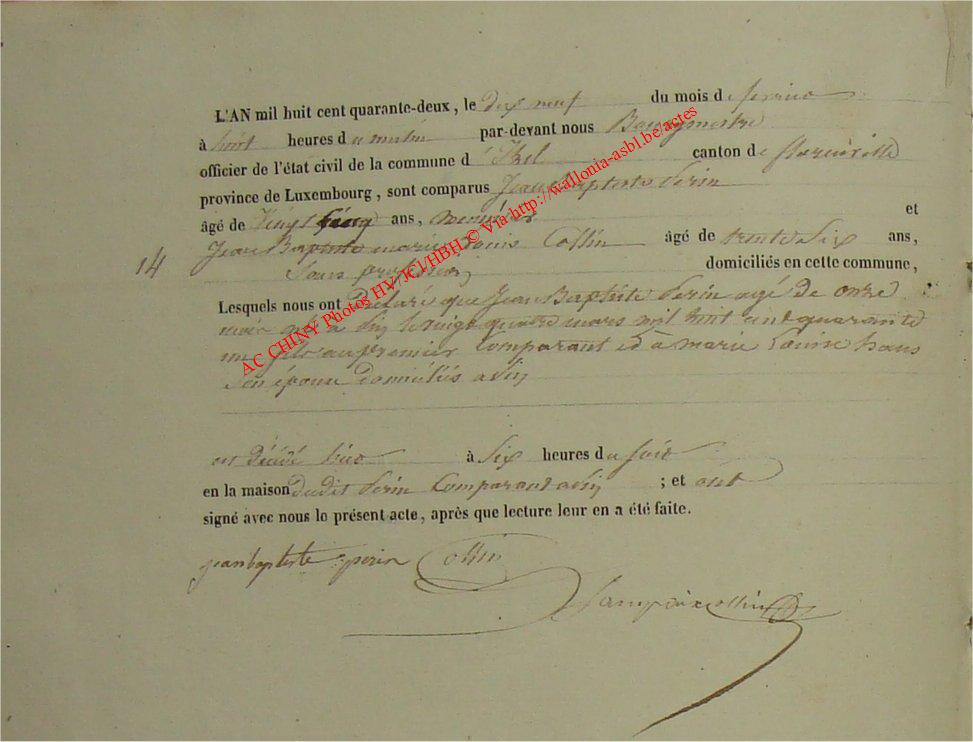 L'AN mil huit cent quarante-deux, le dix neuf du mois de fevrier
à huit heures du matin par-devant nous Bourgmestre
officier de l'état civil de la commune d'Izel canton de florenville
province de Luxembourg, sont comparus Jean Baptiste Perin
âgé de Vingt Cinq ans, et
Jean Baptiste marie Louis Collin âgé de trente Six ans,
14
Sans profession domiciliés en cette commune,
Lesquels nous ont Declaré que Jean Baptiste Perin agé de onze
mois né à Pin le vingt quatre mars mil huit cent quarante
un fils au premier Comparant et a marie Louise hans
Son épouse domiciliés a Pin
est décédé hier à Six heures du soir
en la maison dudit Perin Comparant a Pin ; et ont
signé avec nous le présent acte, après que lecture leur en a été faite.
jean baptiste perin Collin
Lamproix collin
AC CHINY Photos HV/JCl/HBH © Via http://wallonia-asbl.be/actes